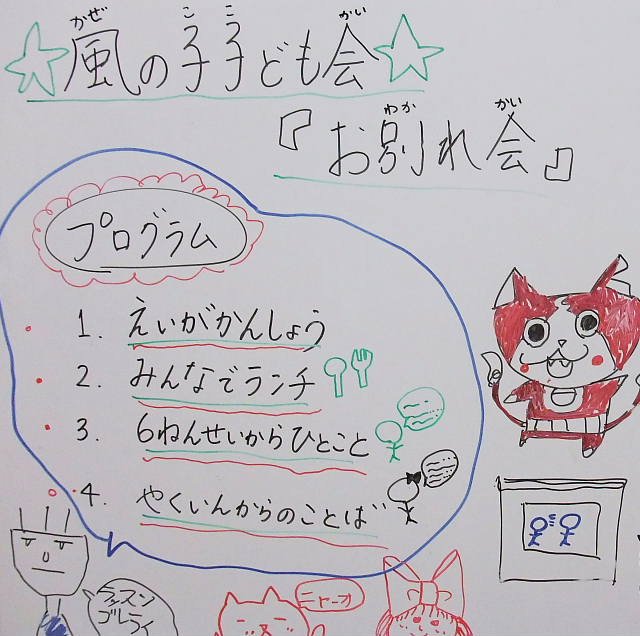 風の子子ども会
『お別れ会』
プログラム
1. えいがかんしょう
2. みんなでランチ
3. 6ねんせいからひとこと
4. やくいんからのことば
ラッスン
ゴレライ
ニャーオ